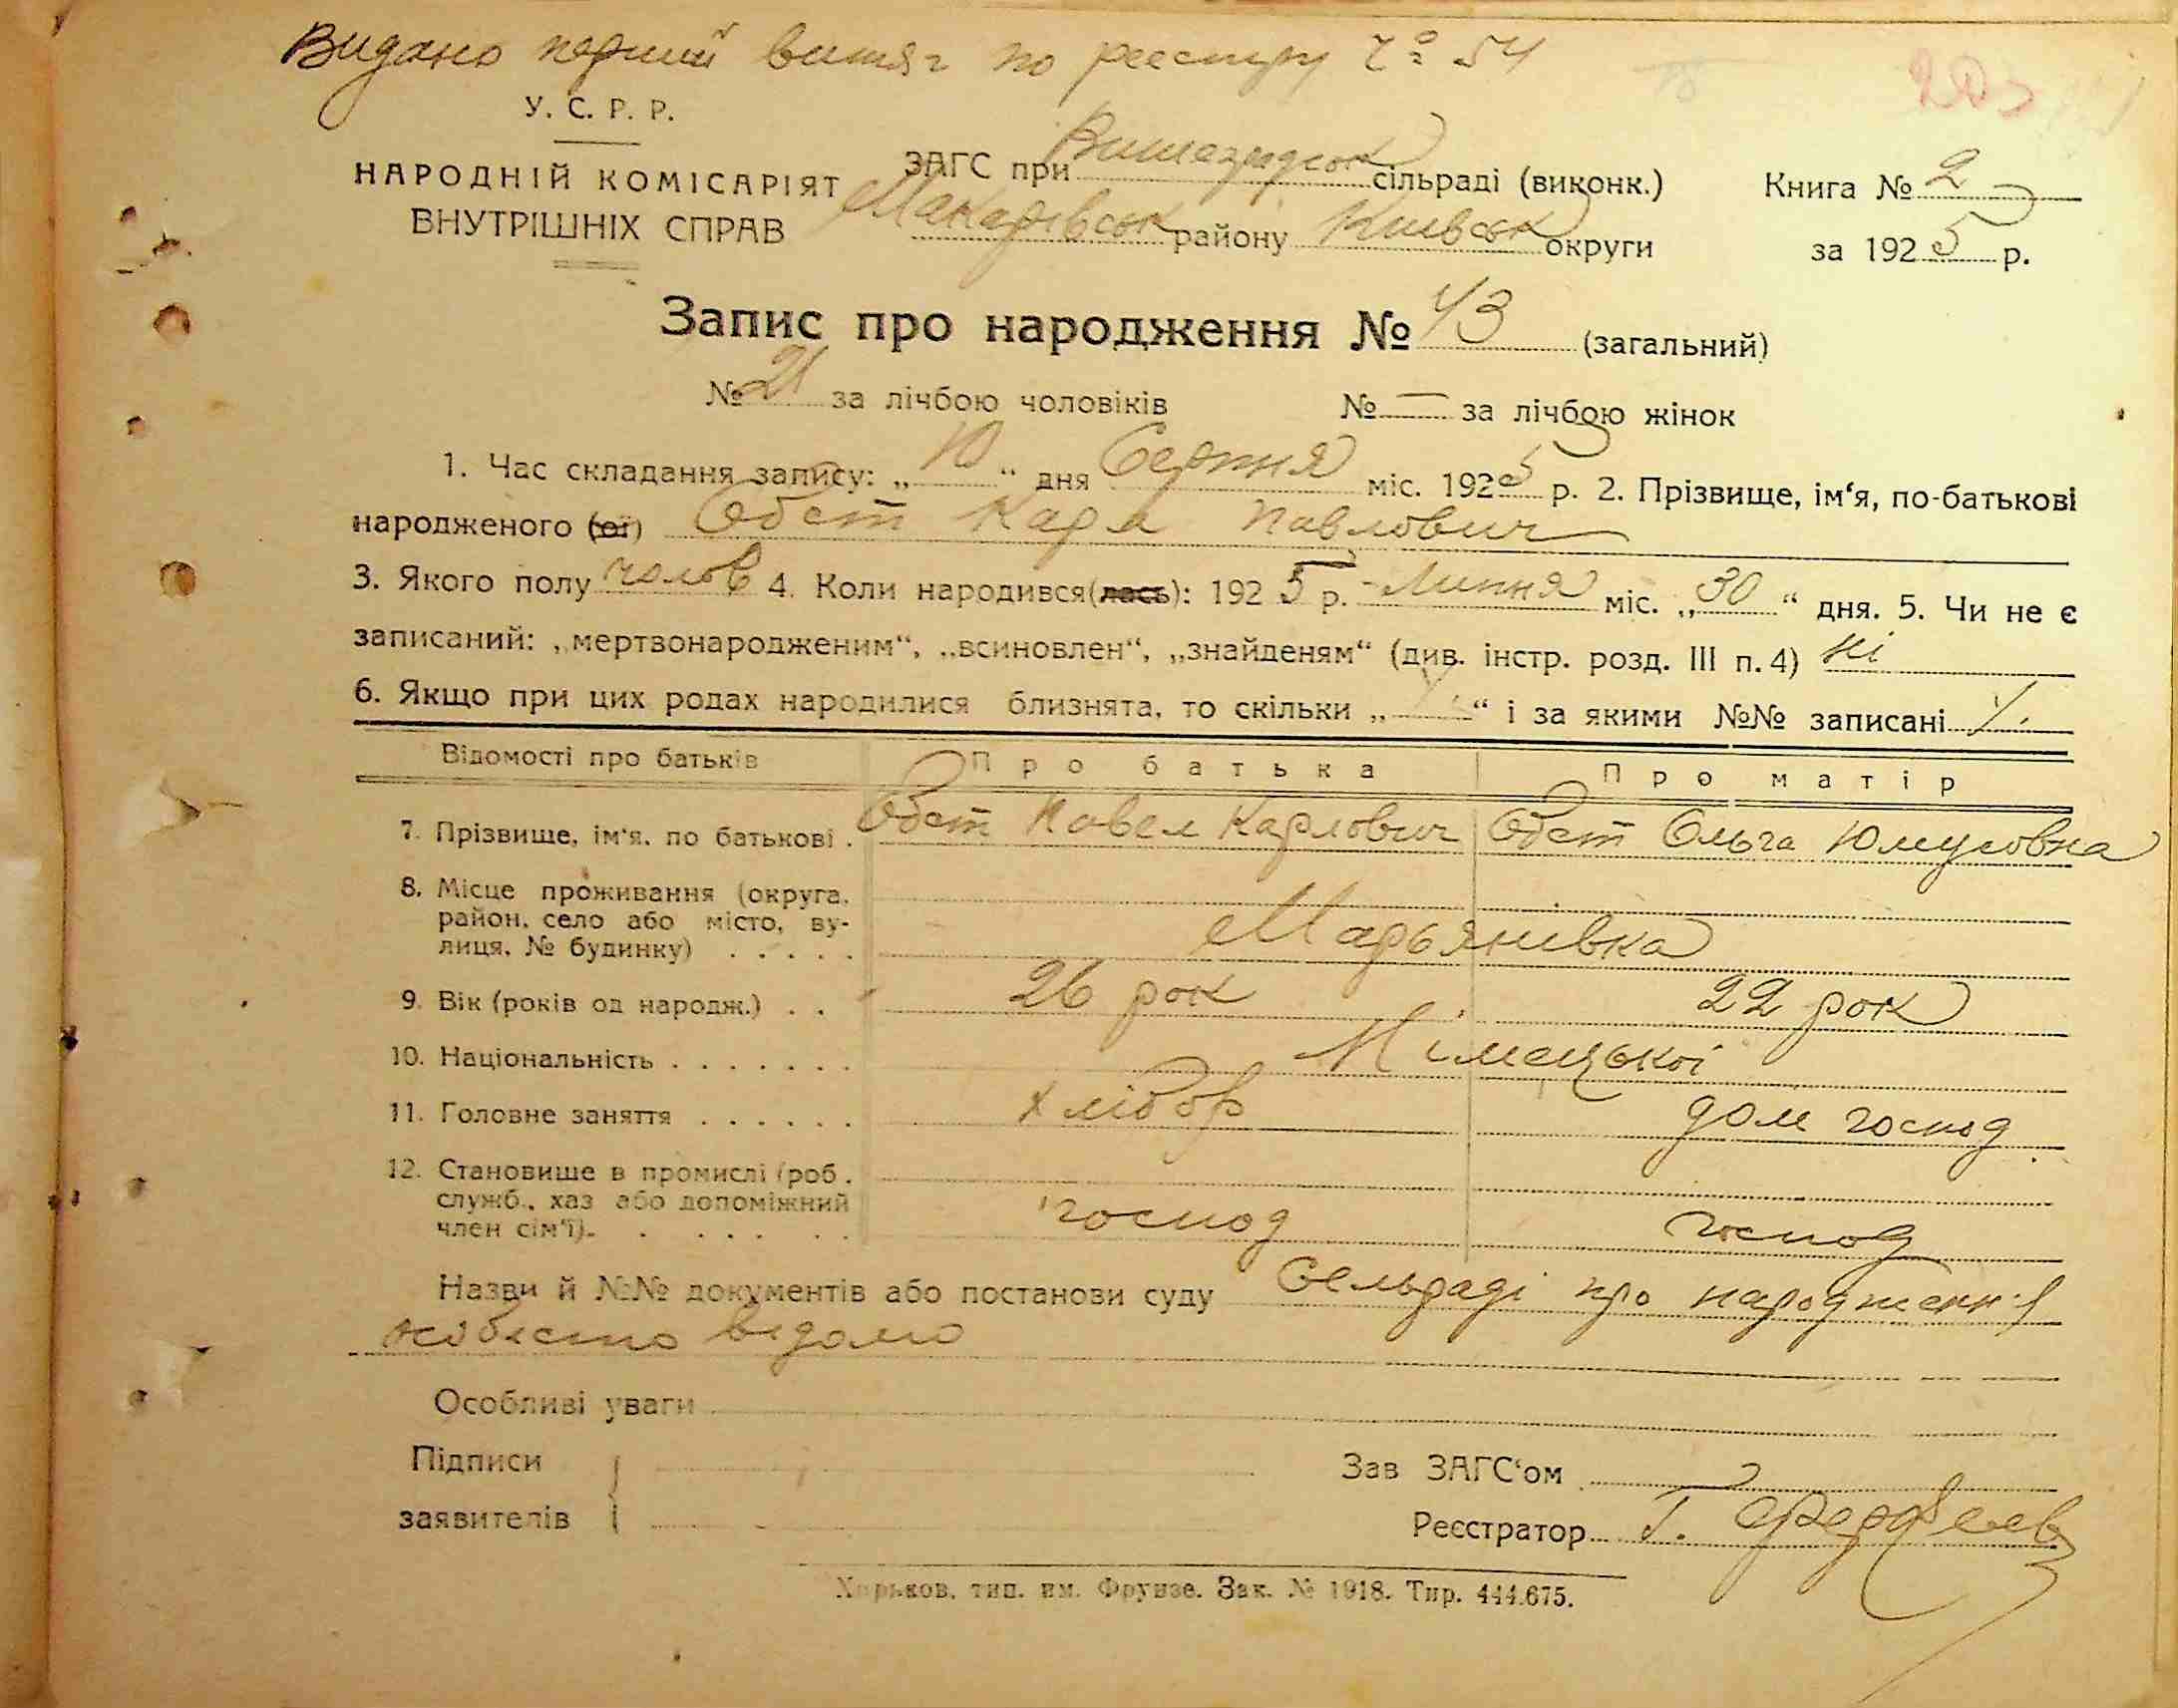 Видано перший витяг по реестру Ч° 54
203
У. С. Р. Р.
НАРОДНІЙ КОМІСАРІЯТ
ВНУТРІШНІХ СПРАВ
ЗАГС при Вишеградськ сільраді (виконк.)
Макарівськ району Київськ округи
Книга № 2
за 1925 р.
Запис про народження № 43 (загальний)
№ 21 за лічбою чоловіків № — за лічбою жінок
1. Час складання запису: „10“ дня Серпня міс. 1925 р. 2. Прізвище, ім‘я, по-батькові
народженого (ої) Обст Карл Павлович
3. Якого полу чолов 4. Коли народився(лась): 1925 р. Липня міс. „30“ дня. 5. Чи не є
записаний: „мертвонародженим“, „всиновлен“, „знайденям“ (див. інстр. розд. III п. 4) ні
6. Якщо при цих родах народилися близнята, то скільки „ “ і за якими №№ записані
Відомості про батьків Про батька Про матір
7. Прізвище, ім‘я, по батькові . Обст Павел Карлович Обст Ольга
8. Місце проживання (округа,
район, село або місто, ву-
лиця, № будинку) . . . . . Марьянівка
9. Вік (років од народж.) . . 26 рок 22 рок
10. Національність . . . . . . . Німецької
11. Головне заняття . . . . . . хлібор дом господ
12. Становище в промислі (роб.
служб., хаз або допоміжний
член сім‘ї). . . . . . . господ господ
Назви й №№ документів або постанови суду Сельраді про народження
особисто відомо
Особливі уваги
Підписи
заявителів
Зав ЗАГС‘ом
Реєстратор Г.
Харьков, тип. им. Фрунзе. Зак. № 1918. Тир. 444.675.